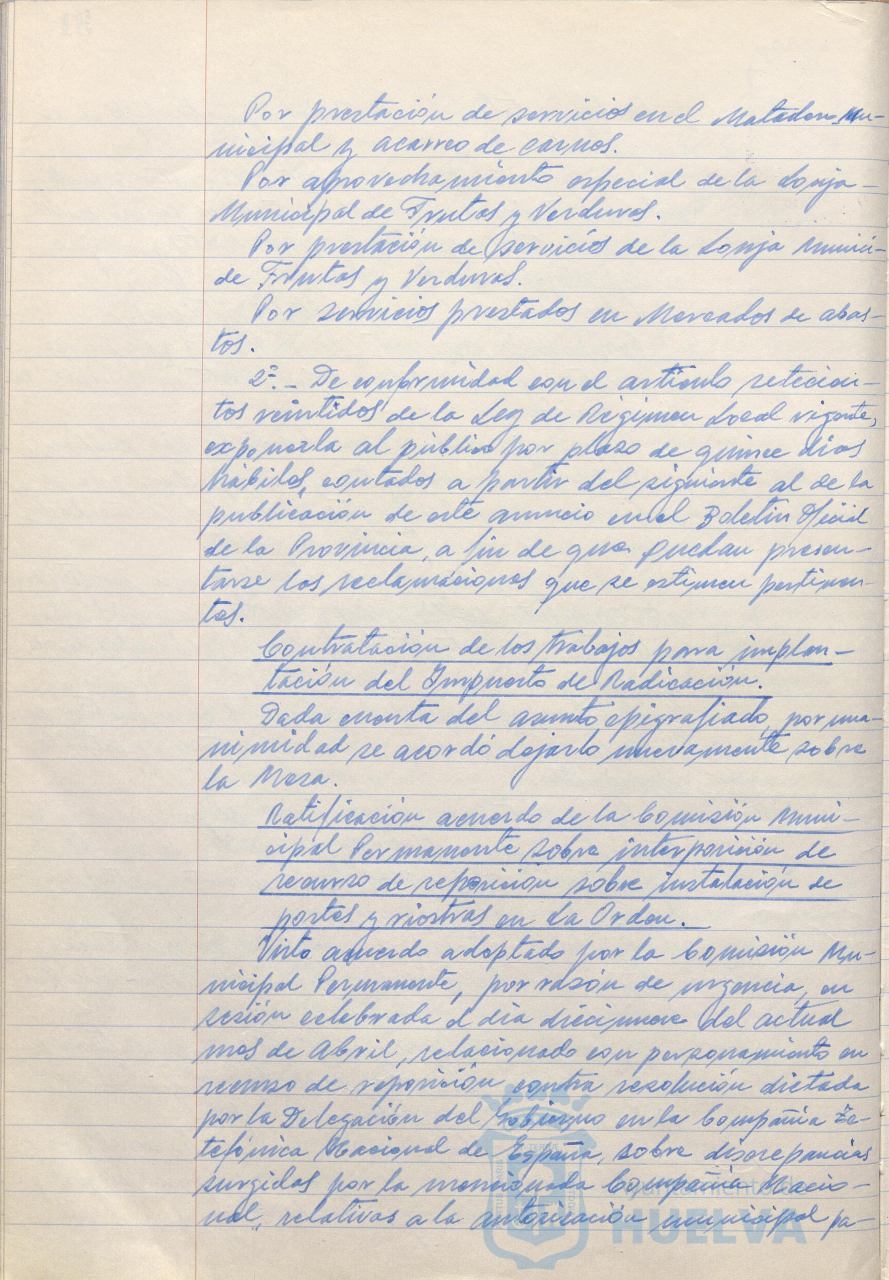 Por prestación de servicios en el Matadero Mu-
nicipal y acarreo de carnes.
Por aprovechamiento especial de la Lonja-
Municipal de Frutas y Verduras.
Por prestación de servicios de la Lonja Munici-
de Frutas y Verduras.
Por servicios prestados en Mercados de abas-
tos.
2º.- De conformidad con el artículo setecien-
tos veintidos de la Ley de Régimen Local vigente,
exponerla al público por plazo de quince dias
hábiles, contados a partir del siguiente al de la
publicación de este anuncio en el Boletín Oficial
de la Provincia, a fin de que puedan presen-
tarse las reclamaciones que se estimen pertinen-
tes.
Contratación de los trabajos para implan-
tación del Impuesto de Radicación.
Dada cuenta del asunto epigrafiado, por una-
nimidad se acordó dejarlo nuevamente sobre
la Mesa.
Ratificación acuerdo de la Comisión Muni-
cipal Permanente sobre interposición de
recurso de reposición sobre instalación de
postes y riostras en La Orden.
Visto acuerdo adoptado por la Comisión Mu-
nicipal Permanente, por razón de urgencia, en
sesión celebrada el dia diecinueve del actual
mes de Abril, relacionado con personamiento en
recurso de reposición contra resolución dictada
por la Delegación del Gobierno en la Compañía Te-
lefónica Nacional de España, sobre discrepancias
surgidas por la mencionada Compañía Nacio-
nal, relativas a la autorización municipal pa-
Ayuntamiento de
HUELVA